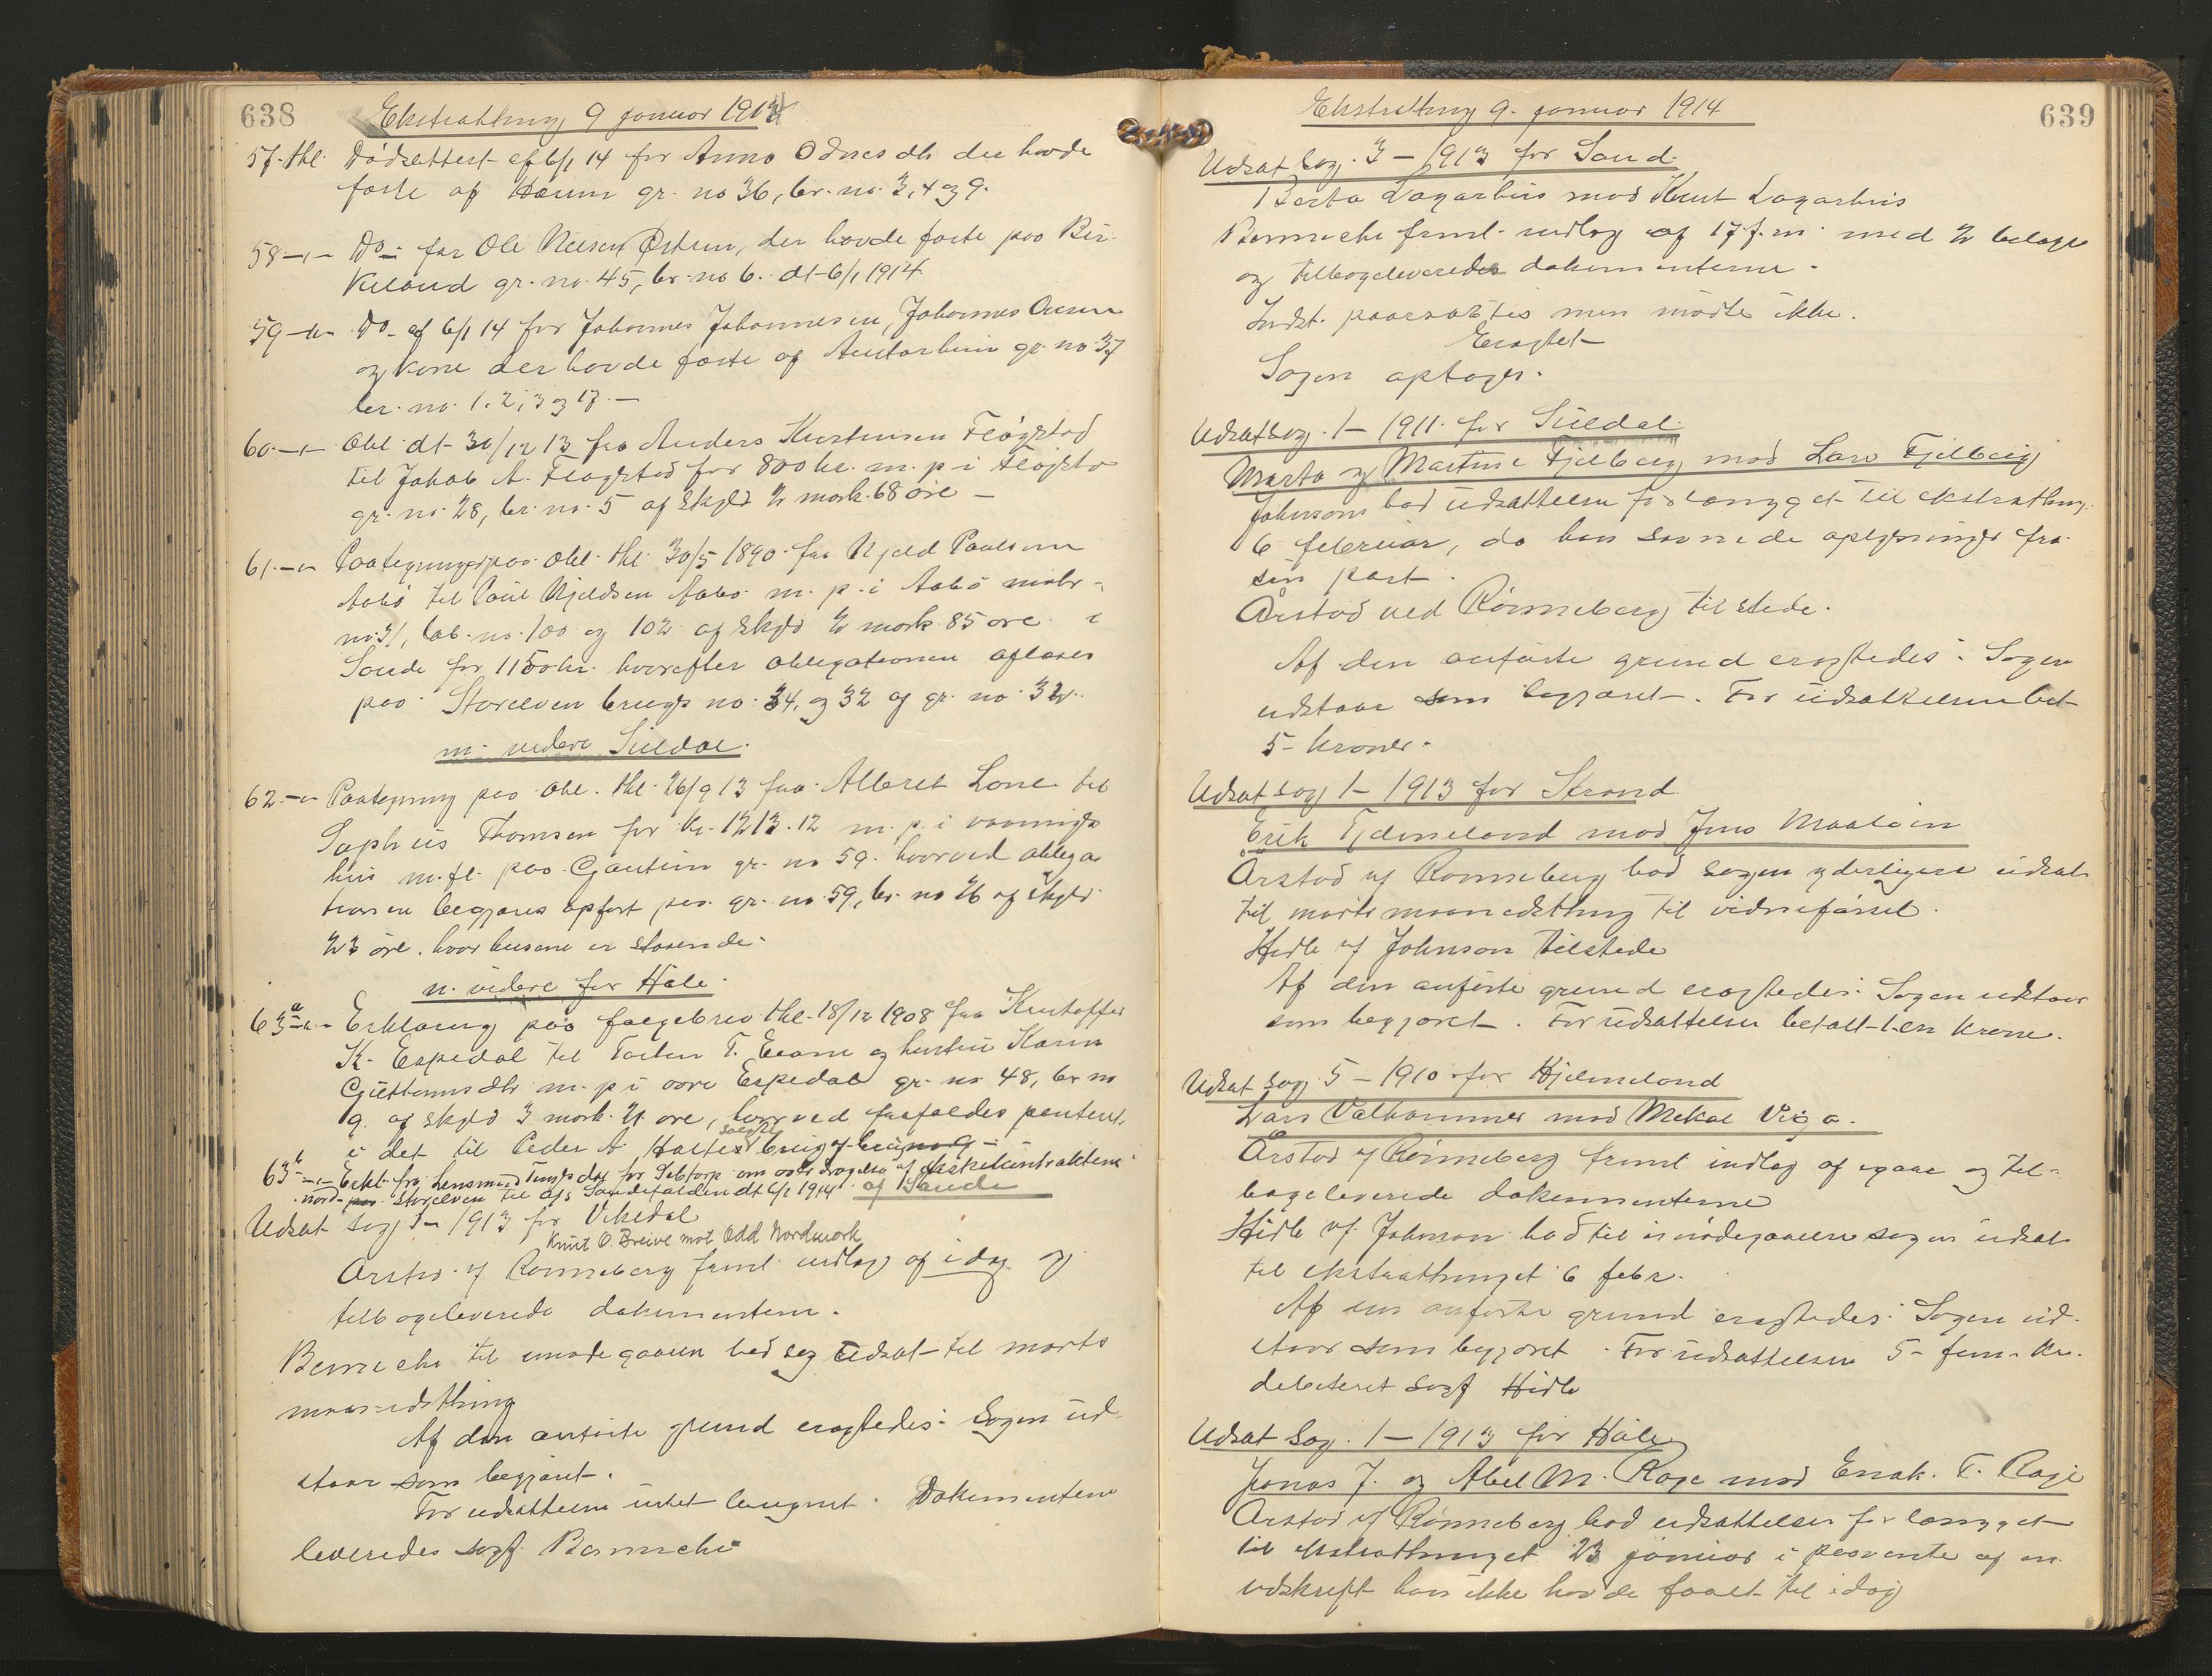 638
Ekstratting 9 januar 1914
57. thl. Dødsattest af 6/1 14 for Anna Odnes dtr der havde
fæste af Hauen gr. no 36, br. no. 3, 4 og 9.
58 -"- Do - for Ole Olsen Østrem, der havde fæste paa Bir-
keland gr. no. 45, br. no 6. dt 6/1 1914.
59 -"- Do - af 6/1 14 for Johannes Johannesen, Johannes Olsen
og kone der havde fæste af gr. no 37
br. no. 1. 2, 3 og 17. -
60 -"- Obl. dt 30/12 13 fra Anders Knutsen Fløgstad
til Jakob A. Fløgstad for 800 kr. m. p i Fløgsta
gr. no. 28, br. no. 5 af skyld 2 mark 68 øre -
61. -"- Paategning paa obl. thl. 30/5 1890 fra Kjeld Paulsen
Aabø til Paul Kjeldsen Aabø m. p. i Aabø matr.
no. 31, løb. no. 100 og 102 af skyld 2 mark 85 øre i
Sande for 1150 kr. hvorefter obligationen aflæses
paa Storelven brugs no. 34, og 32 af gr. no. 32.
m. videre Suldal.
62. -"- Paategning paa obl. thl. 26/9 13 fra Albert Lone til
Sophus Thomsen for kr. 1213.12 m. p. i vaanings
hus m. fl. paa gr. no 59. hvorved obliga
tionen begjæres opført paa gr. no. 59, br. no 26 af skyld
23 øre. hvor husene er staaende.
m. videre for Hæle.
63 a -"- Erklæring paa føgebrev thl. 18/12 1908 fra Kristoffer
K. Espedal til Torten T. og hustru Karen
Guttormsdtr m. p i øvre Espedal gr. no 48, br no
9. af skyld 3 mark 21 øre, hvorved frafaldes panteret
i det til Peder A. Høltes solgte brug af brugno 9 -
63 b -"- Erkl. fra Lensmand for om overdragelse af fiskekontrakten
nord paa Storelven til A/s Sandsfalden dt 6/1 1914 af Sande
Udsat sag 3 - 1913 for Vikedal
Knut O. Breive mot Odd Nordmork
Årstad v/ Rønneberg freml. indlæg af idag og
tilbageleverede dokumenterne.
Bennecke til imødegaaen bad sag udsat til marts
maanedsthing
Af den anførte grund eragtedes: Sagen ud-
staar som begjæret.
For udsættelsen intet beregnet. Dokumenterne
leveredes sagf. Bennecke
639
Ekstratting 9. januar 1914
Udsat sag. 3 - 1913 for Sand.
Berta Lagarhus mod Knut Lagarhus
Bennecke freml. indlæg af 17 f. m. med 2 bilage
og tilbageleverede dokumenterne.
Indst. paaraabtes men mødte ikke.
Eragtet
Sagen optages.
Udsat sag. 1 - 1911. for Suldal.
Marta og Martine Fjelberg mod Lars Fjelberg
Johnson bad udsættelsen forlænget til ekstratting
6 februar, da han savnede oplysninger fra
sin part.
Årstad ved Rønneberg tilstede.
Af den anførte grund eragtedes: Sagen
udstaar som begjæret. For udsættelsen bet
5 - kroner.
Udsat sag 1 - 1913 for Strand
Erik Tjensvold mod Jens Maaløin
Årstad v/ Rønneberg bad sagen yderligere udsat
til marts maanedsthing til vidneførsel.
Hidle v/ Johnson tilstede
Af den anførte grund eragtedes: Sagen udstaar
som begjæret. For udsættelsen betalt 1 - en krone.
Udsat sag 5 - 1910 for Hjelmeland
Lars Valhammer mod Mikal Viga.
Årstad v/ Rønneberg freml indlæg af igaar og til-
bageleverede dokumenterne
Hidle v/ Johnson bad til imødegaaelse sagen udsat
til ekstratthinget 6 febr.
Af den anførte grund eragtedes: Sagen ud-
staar som begjæret. For udsættelsen 5 - fem - kr.
debiteret sagf Hidle
Udsat sag. 1 - 1913 for Hæle
Jonas J. og Abel M. Rage mod Enok. T. Rage
Årstad v/ Rønneberg bad udsættelsen forlænget
til ekstratthinget 23 januar i paavente af en
udskrift han ikke havde faaet til idag